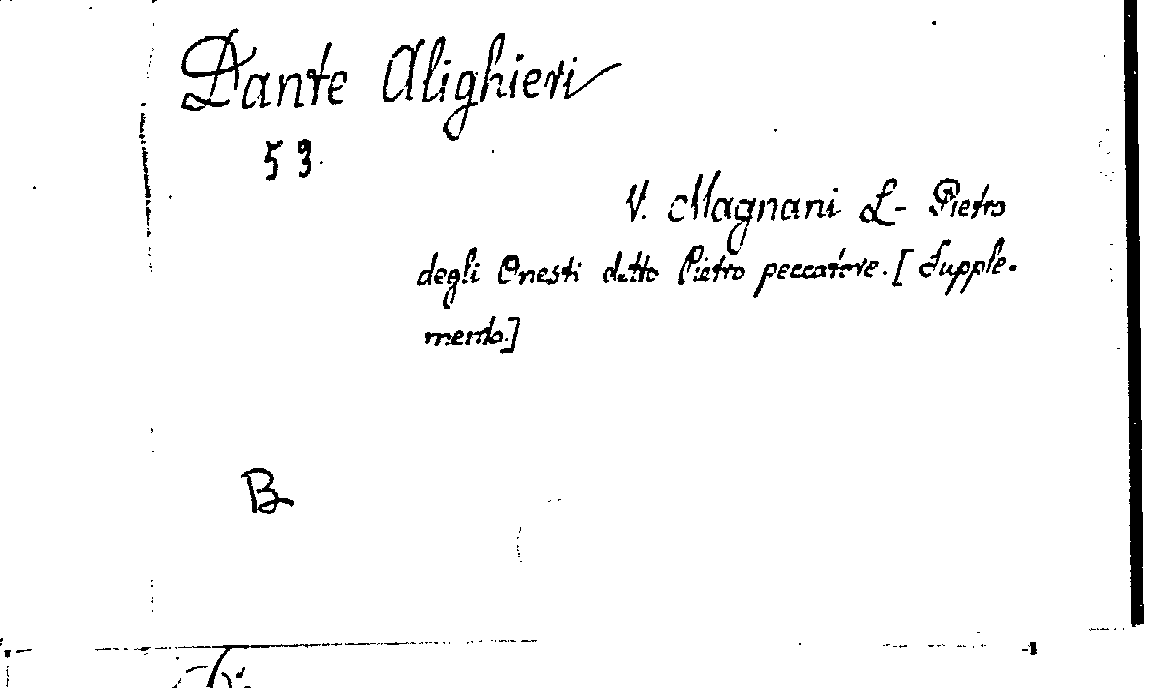 Dante Alighieri
53.
V. Magnani L- Pietro
degli Onesti detto Pietro peccatore. [Supple-
mento.]
B